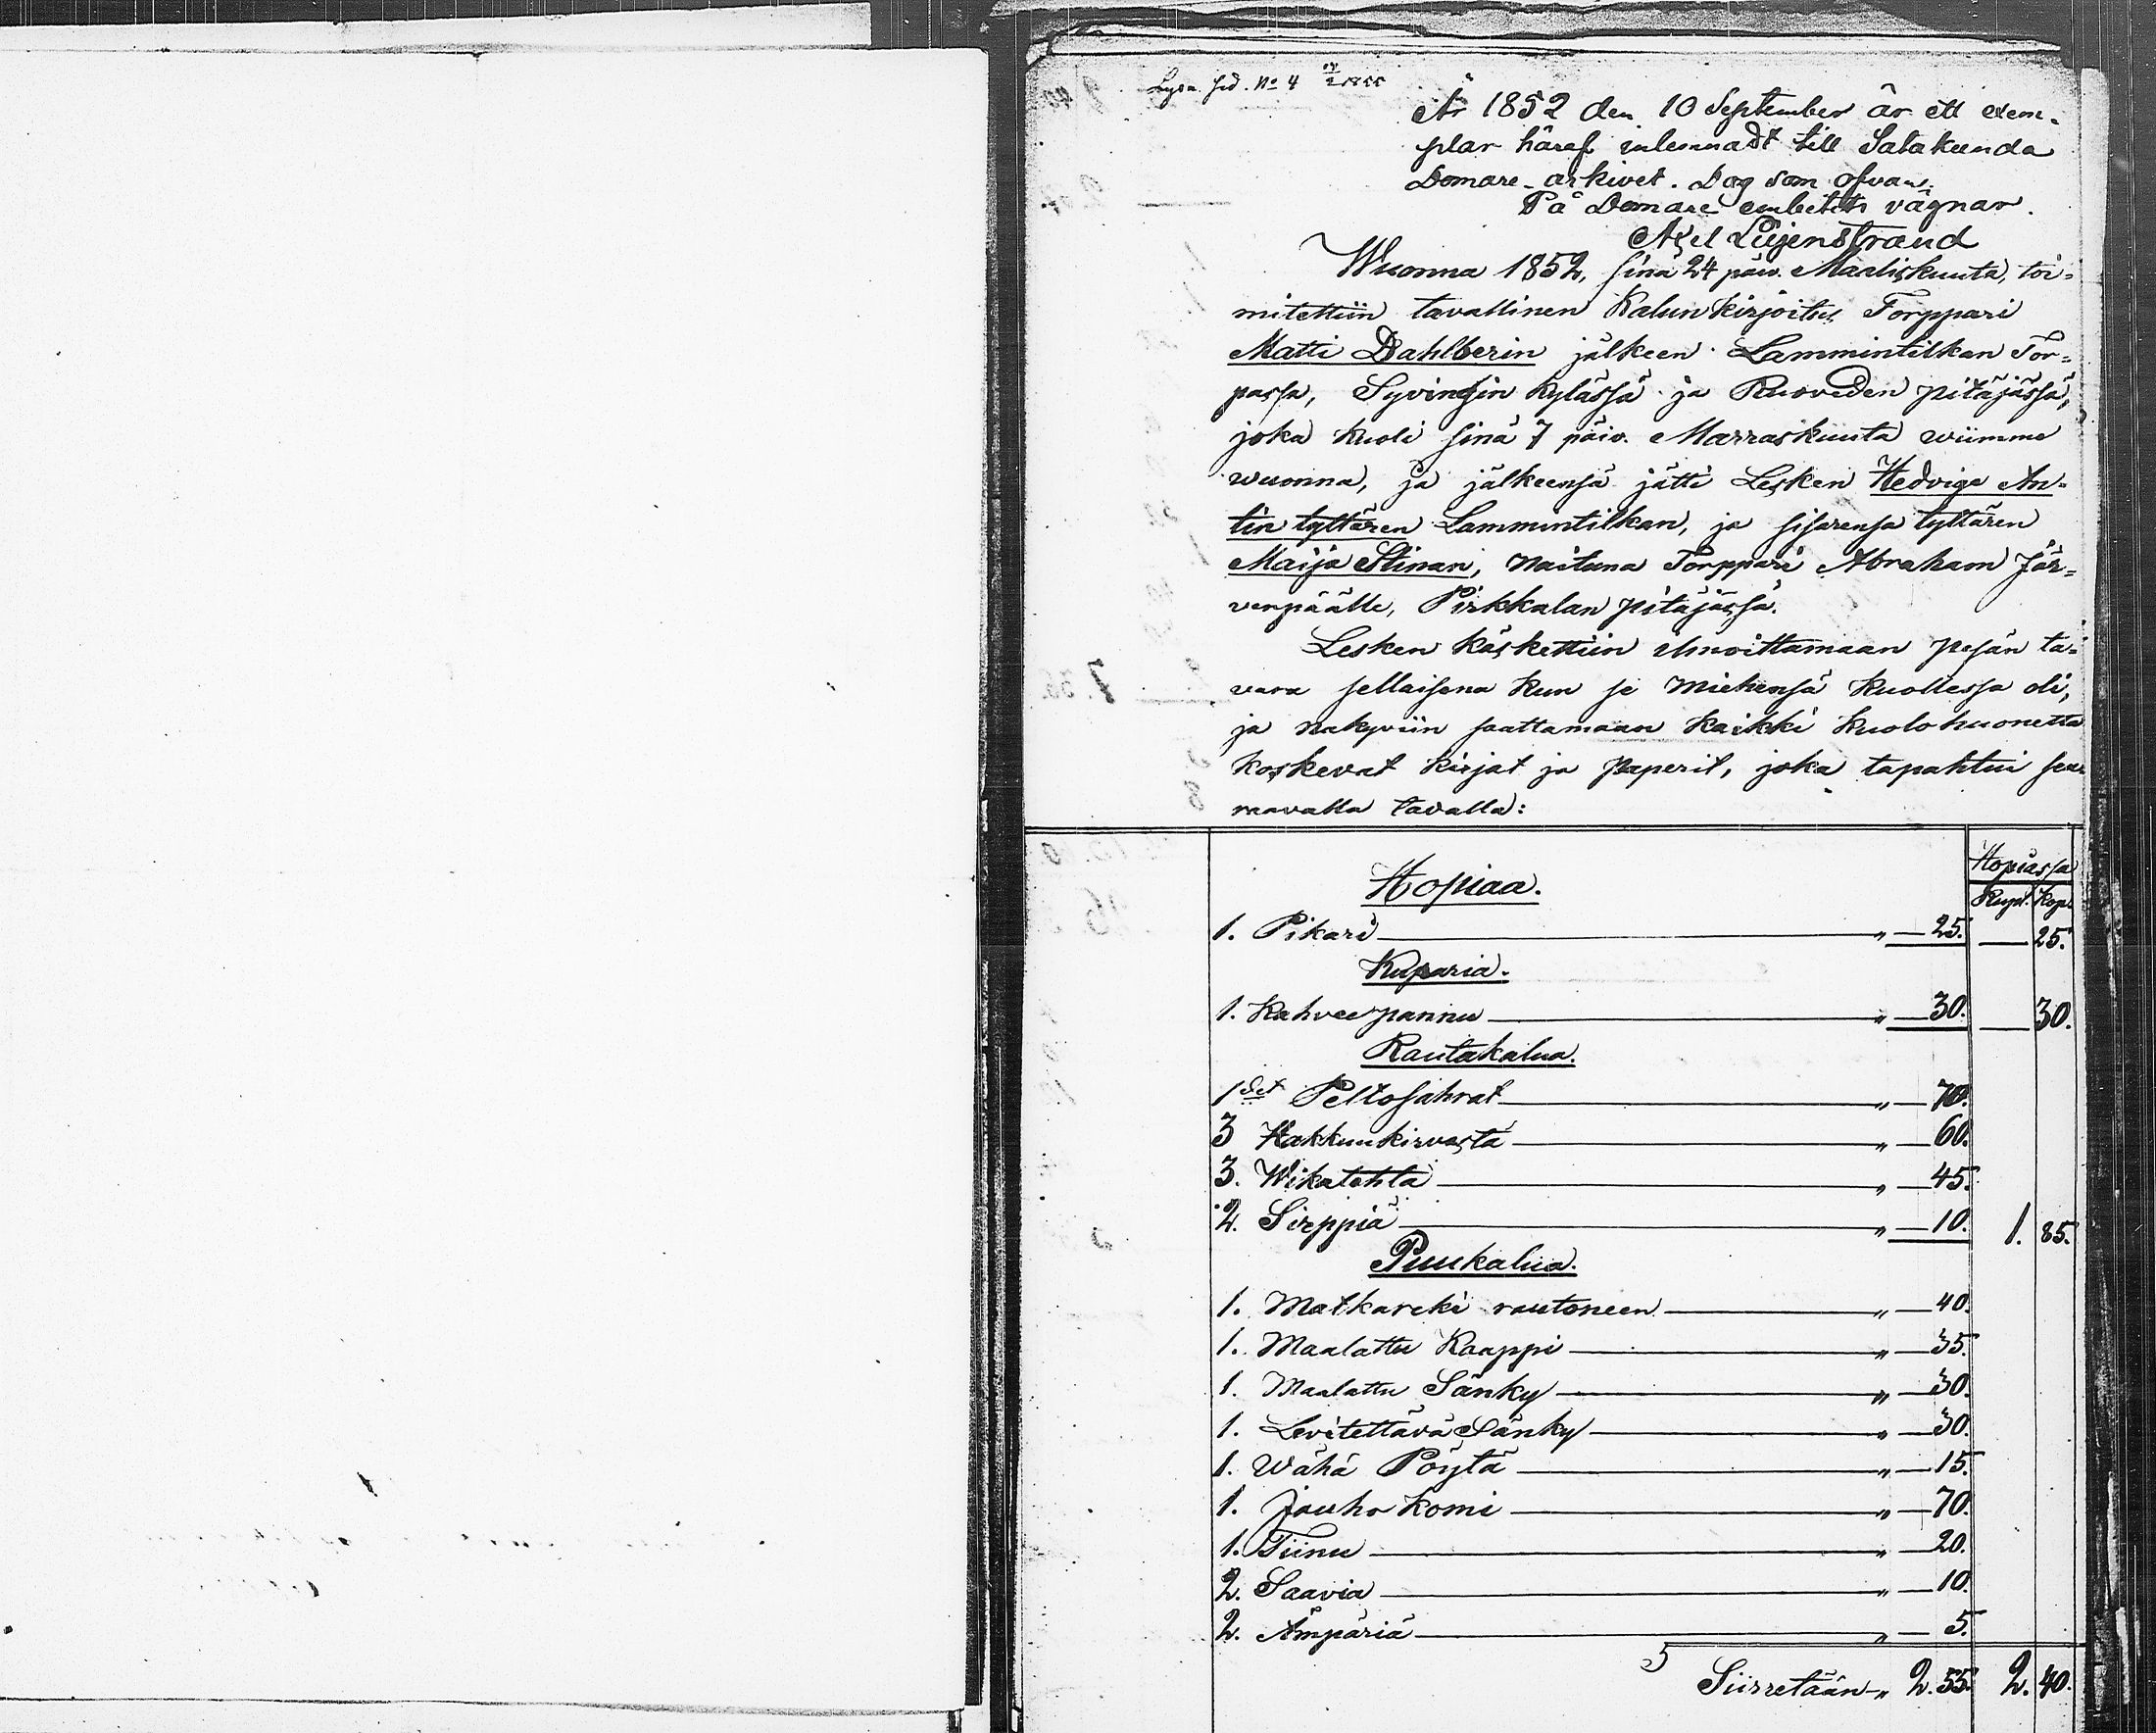 År 1852 den 10 September är ett exem-
plar häraf inlemnadt till Satakunda
Domare-arkivet. Dag som ofvan.
På Domare embetets vägnar.
Axel Liljenstrand
Wuonna 1852, sinä 24 päiv. Maaliskuuta, toi-
mitettiin tavallinen Kalun kirjoitus Torppari
Matti Dahlberin jälkeen Lammintilkan Tor-
passa, Syvingin kylässä ja Ruoveden pitäjässä,
joka kuoli sinä 7 päiv. Marraskuuta wiimme
wuonna, ja jälkeensä jätti Lesken Hedviga An-
tin tyttären Lammintilkan, ja sisarensa tyttären
Maija Stinan, naituna Torppari Abraham Jär-
venpäälle, Pirkkalan pitäjässä.
Lesken käskettiin ilmoittamaan pesän ta-
vara sellaisena kun se miehensä kuollessa oli,
ja nakyviin saattamaan kaikki kuolohuonetta
koskevat kirjat ja paperit, joka tapahtui seu
raavalla tavalla:
Hopiassa
Hopiaa.
Rupl. Kop.
1. Pikari " — 25. — 25.
Kuparia.
1. Kahveepannu " — 30. — 30.
Rautakalua.
1 Peltosahrat " — 70.
3 Hakkuukirvestä " — 60.
3. Wikatehta " — 45.
2. Sirppiä " — 10. 1. 85.
Puukalua.
1. Matkareki rautoneen " — 40.
1. Maalattu Kaappi " — 35.
1. Maalattu Sänky " — 30.
1. Levitettävä Sänky " — 30.
1. Wähä Pöytä " — 15.
1. Jauho komi " — 70.
1. Tiinu " — 20.
2. Saavia " — 10.
2. Ämpäriä " — 5.
Siirretään " 2. 55. 2. 40.